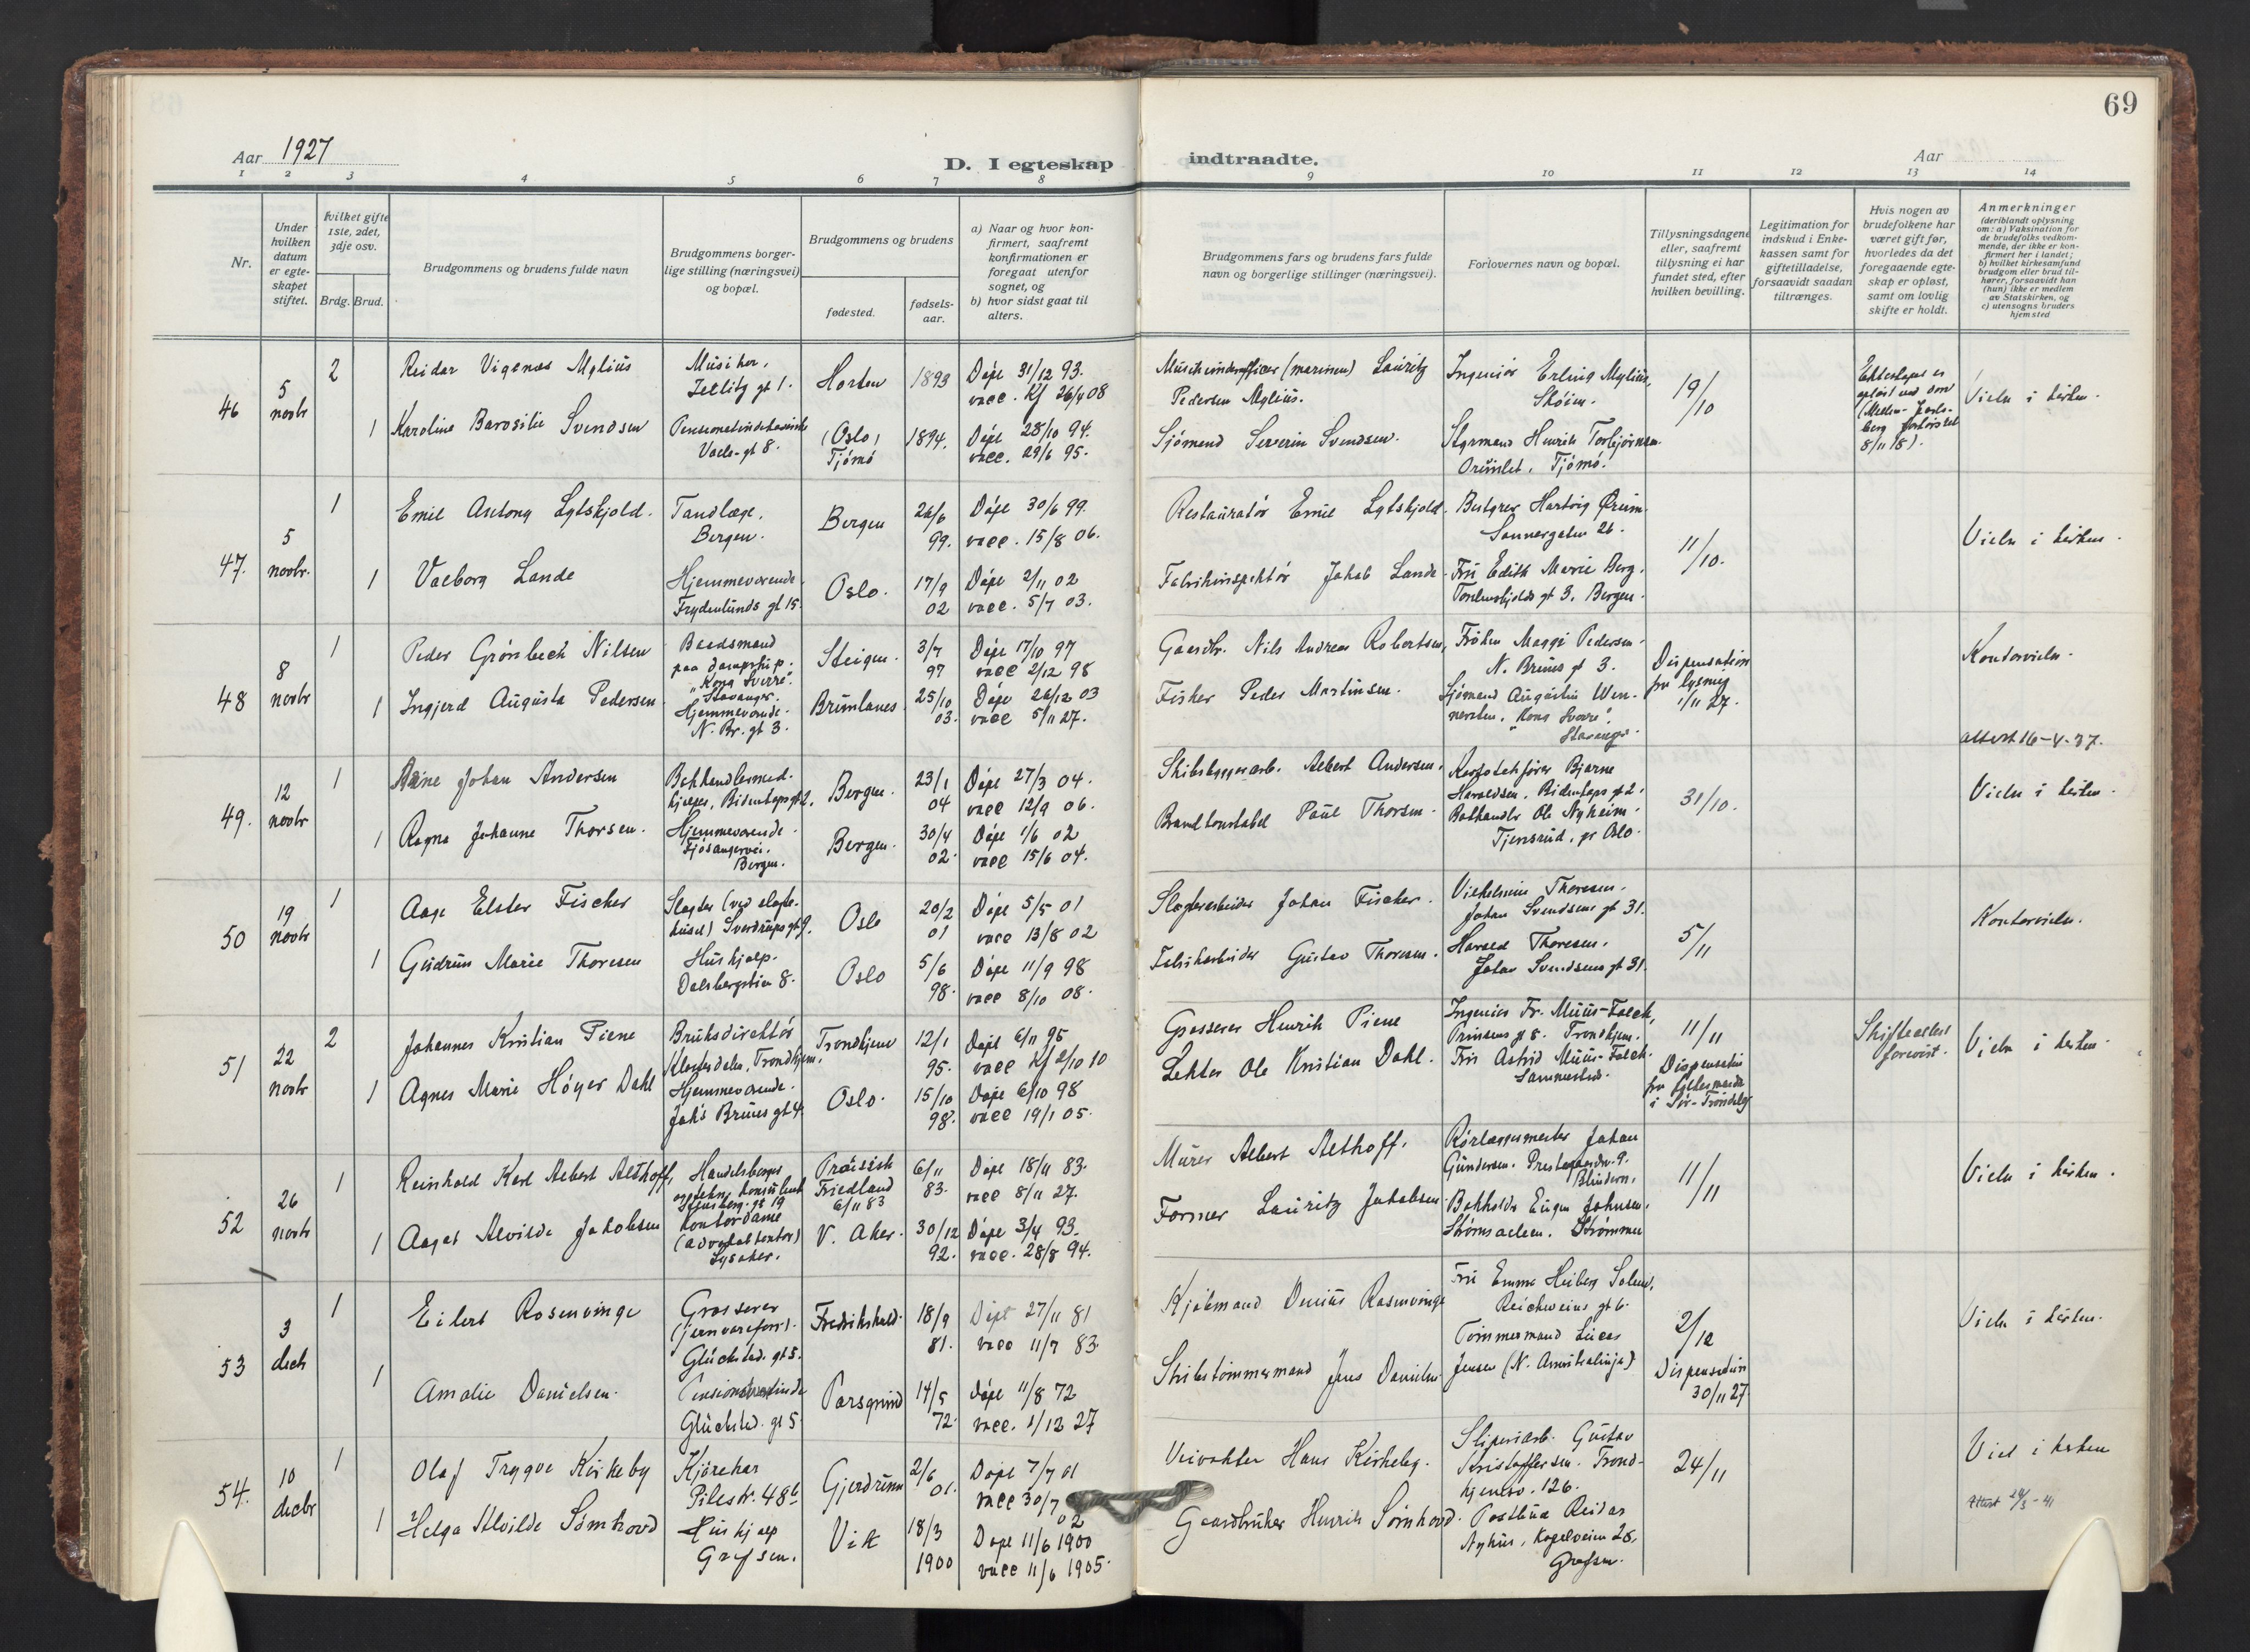 69
Aar 1927
D. I egteskap indtraadte.
Aar
1 2 3 4 5 6 7 8 9 10 11 12 13 14
Nr.
Under hvilken datum er egteskapet stiftet.
hvilket gifte 1ste, 2det, 3dje osv.
Brdg. Brud.
Brudgommens og brudens fulde navn
Brudgommens borgerlige stilling (næringsvei) og bopæl.
Brudgommens og brudens
fødested.
fødselsaar.
a) Naar og hvor konfirmert, saafremt konfirmationen er foregaat utenfor sognet, og
b) hvor sidst gaat til alters.
Brudgommens fars og brudens fars fulde navn og borgerlige stillinger (næringsvei).
Forlovernes navn og bopæl.
Tillysningsdagene eller, saafremt tillysning ei har fundet sted, efter hvilken bevilling.
Legitimation for indskud i Enkekassen samt for giftetilladelse, forsaavidt saadan tiltrænges.
Hvis nogen av brudefolkene har været gift før, hvorledes da det foregaaende egteskap er opløst, samt om lovlig skifte er holdt.
Anmerkninger (deriblandt oplysning om: a) Vaksination for de brudefolks vedkommende, der ikke er konfirmert her i landet; b) hvilket kirkesamfund brudgom eller brud tilhører, forsaavidt han (hun) ikke er medlem av Statskirken, og c) utensogns bruders hjemsted
46
5 novbr
2
Reidar Vigenæs Mylius
Musiker.
Horten
1893
Døpt 31/12 93.
vacc. Kf 26/4 08
Pedersen Mylius.
Ingeniør Erling Mylius,
Skøien.
19/10
Vieln i kirken.
1
Svendsen
(Oslo)
Tjömö
1894.
Døpt 28/10 94.
vacc. 29/6 95.
Sjömand Severin Svendsen.
Styrmand Henrik Torbjörnsen
Tjömö.
8/11 18).
47.
5 novbr.
1
Emil Antony Lytskjold.
Tandlæge.
Bergen.
Bergen
26/6 99.
Døpt 30/6 99.
vacc. 15/8 06.
Restauratör Emil Lytskjold.
Bestyrer Hartvig Ørum
Sannergaten 26.
11/10.
Vieln i kirken.
1
Valborg Lande
Hjemmeværende.
Frydenlunds gt 15.
Oslo.
17/9 02
Døpt 2/11 02
vacc. 5/7 03.
Fabrikinspektör Jakob Lande.
Fru Edith Marie Berg.
Tordenskjolds gt 3. Bergen.
48
8 novbr
1
Peder Grönbech Nilsen
Baadsmand
paa dampskip.
"Kong Sverre".
Stavanger.
Steigen.
3/7 97
Døpt 17/10 97
vacc 2/12 98
Gaardbr. Nils Andreas Robertsen,
Fröken Maggi Pedersen.
N. Bruns gt 3.
Dispensation
fra lysning
1/11 27.
Kontorvieln.
1
Ingjerd Augusta Pedersen.
Hjemmeværende.
N. Br. gt 3.
25/10 03.
Døpt 26/12 03
vacc 5/11 27.
Fisker Peder Martinsen.
"Kong Sverre".
Stavanger.
attest 16-4-37.
49.
12 novbr
1
Johan Andersen
Bergen.
23/1 04
Døpt 27/3 04.
vacc 12/9 06.
Albert Andersen.
Haraldsen.
31/10.
Vieln i kirken.
1
Ragna Johanne Thorsen.
Hjemmeværende.
Fjösangervei.
Bergen.
Bergen.
30/4 02.
Døpt 1/6 02
vacc 15/6 04.
Brandkonstabel Paul Thorsen.
Ole Nyheim.
Tjensrud, pr Oslo.
50
19 novbr
1
Aage Elster Fischer
Sverdrups gt 9.
Oslo
20/2 01
Døpt 5/5 01
vacc 13/8 02
Johan Fischer.
Vilhelmine Thoresen.
Johan Svendsens gt 31.
5/11
Kontorvieln.
1
Gudrun Marie Thoresen
Hushjælp.
Dalsbergstien 8.
Oslo
5/6 98.
Døpt 11/9 98
vacc 8/10 08.
Fabrikarbeider Gustav Thoresen.
Harald Thoresen.
Johan Svendsens gt 31.
51
22 novbr
2
Johannes Kristian Piene
Bruksdirektör
Trondhjem.
Trondhjem
12/1 95.
Døpt 6/11 95
vacc Kf 2/10 10
Grosserer Henrik Piene
Ingeniør Fr. Muus-Falck,
Prinsens gt 8. Trondhjem.
11/11
Dispensation
fra fylkesmanden
i Sör-Tröndelag
Skifteattest
forevist.
Vieln i kirken.
1
Agnes Marie Höyer Dahl
Hjemmeværende.
Johs Bruns gt 4.
Oslo.
15/10 98.
Døpt 6/10 98
vacc 19/1 05.
Lektor Ole Kristian Dahl.
Fru Astrid Muus-Falck.
Sammesteds.
52
26 novbr
1
Reinhold Karl Albert Althoff,
Handelsborger
Friedland
6/11 83
6/11 83.
Døpt 18/11 83.
vacc 8/11 27.
Murer Albert Althoff.
Rörlæggermester Johan
Gundersen.
Blindern.
11/11
Vieln i kirken.
1
Aagot Alvilde Jakobsen
Kontordame
(advokatkontor)
Lysaker.
V. Aker.
30/12 92.
Døpt 3/4 93.
vacc. 28/8 94.
Former Lauritz Jakobsen.
Eugen Johnsen,
Strömmen
53
3 decb
1
Eilert Rosenvinge
Grosserer
(jernvareforr).
Glückstad. gt 5.
Fredrikshald.
18/9 81.
Døpt 27/11 81
vacc 11/7 83.
Kjöbmand Rosenvinge
Fru Emma Heiberg Solem,
Reichweins gt 6.
2/12
Dispensation
30/11 27.
Vieln i kirken.
1
Amalie Danielsen.
Glückstad. gt 5.
Porsgrund
14/5 72.
Døpt 11/8 72
vacc. 1/12 27
Skibstömmermand Jens Danielsen
Tömmermand Lucas
Jensen (N. Amerikalinje)
54.
10 decbr
1
Olaf Trygve Kirkeby
Kjörekar
Pilestr. 48 b
Gjerdrum
2/6 01.
Døpt 7/7 01
vacc 30/7 02
Veivokter Hans Kirkeby.
Sliperiarb. Gustav
Kristoffersen. Trond-
hjemsv. 126.
24/11
Viel i kirken
1
Helga Alvilde Sömhovd
Hushjælp
Grefsen.
Vik
18/3 1900
Døpt 11/6 1900
vacc 11/6 1905.
Gaardbruker Henrik Sömhovd.
Postbud Reidar
Nyhus, Kapelveien 28,
Grefsen.
Attest 29/3-41